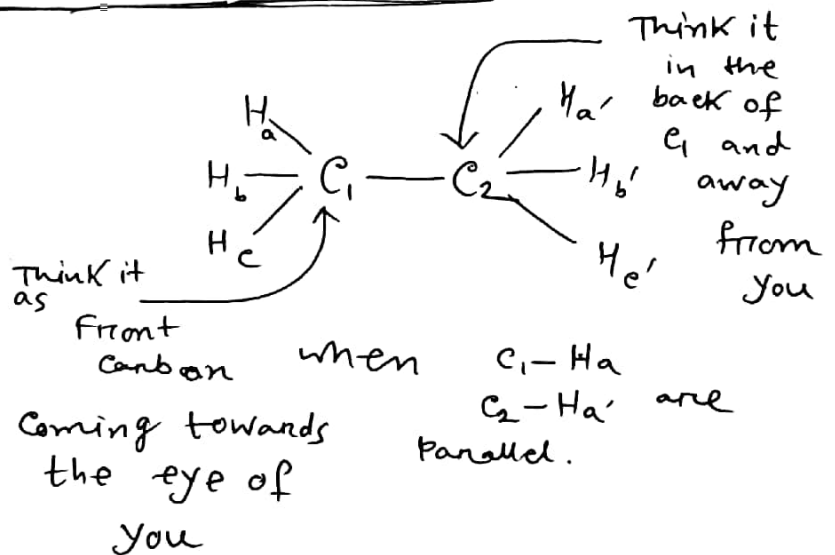 Think it
in the
back of
C1 and
away
from
you
Ha Ha'
Hb C1 C2 Hb'
Hc Hc'
Think it
as
Front
Carbon
Coming towards
the eye of
you
when C1-Ha
C2-Ha' are
Parallel.